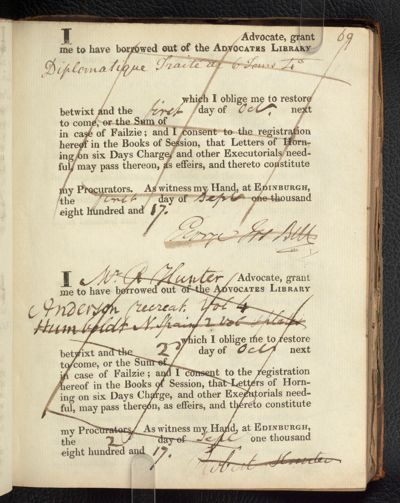 I Advocate, grant 69
me to have borrowed out of the ADVOCATES LIBRARY
Diplomatique Traite de 6 Toms 4o
which I oblige me to restore
betwixt and the first day of Oct. next
to come, or the Sum of
in case of Failzie; and I consent to the registration
hereof in the Books of Session, that Letters of Horn-
ing on six Days Charge, and other Executorials need-
ful, may pass thereon, as effeirs, and thereto constitute
my Procurators. As witness my Hand, at EDINBURGH,
the first day of Sept one thousand
eight hundred and 17.
George Jos Bell
I Mr R Hunter Advocate, grant
me to have borrowed out of the ADVOCATES LIBRARY
Anderson recreat. Vol 4
Humboldt N Spain 2 vol & plates
which I oblige me to restore
betwixt and the 2d day of Oct next
to come, or the Sum of
in case of Failzie; and I consent to the registration
hereof in the Books of Session, that Letters of Horn-
ing on six Days Charge, and other Executorials need-
ful, may pass thereon, as effeirs, and thereto constitute
my Procurators. As witness my Hand, at EDINBURGH,
the 2 day of Sept one thousand
eight hundred and 17.
Robert Hunter